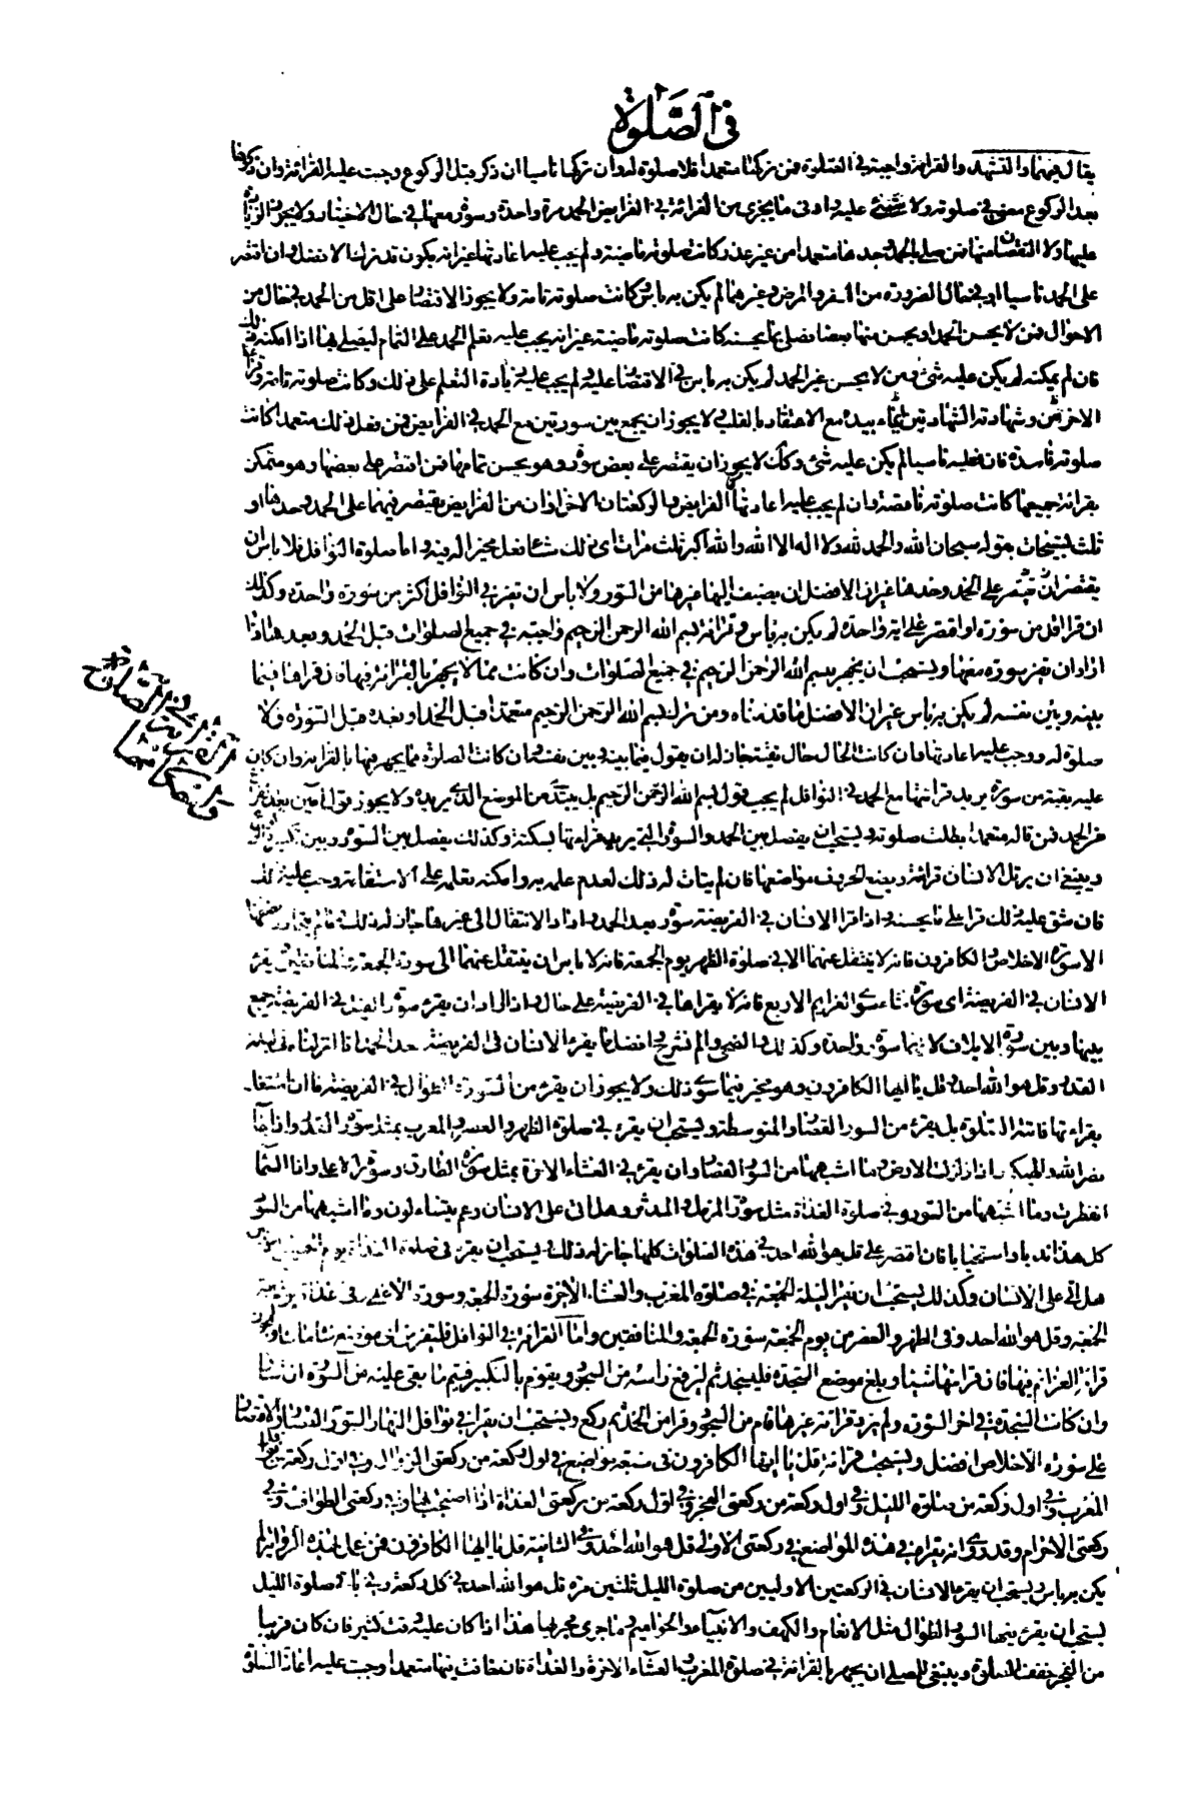 في الصلوة
يقال فيهما والتشهد والقرائة واجبة في الصلوة فمن تركها متعمدا فلا صلوة له وان تركها ناسيا ان ذكر قبل الركوع وجبت عليه القرائة وان ذكرها
بعد الركوع مضى في صلوته ولا شيء عليه وادنى ما يجزى من القرائة في الفرايض الحمد مرة واحدة وسورة معها في حال الاختيار ولا يجوز الزيادة
عليها ولا النقصان منها فمن صلى بالحمد وحدها متعمدا من غير عذر كانت صلوته ماضية ولم يجب عليه اعادتها غير انه يكون قد ترك الافضل وان اقتصر
على الحمد ناسيا او في حال الضرورة من السفر والمرض وغيرهما لم يكن به باس وكانت صلوته تامة ولا يجوز الاقتصار على اقل من الحمد في حال من
الاحوال فمن لا يحسن الحمد او يحسن منها بعضا فصلى بما يحسنه كانت صلوته ماضية غير انه يجب عليه تعلم الحمد على التمام ليصلى بها اذا امكنه ذلك
فان لم يمكنه لم يكن عليه شئ ومن لا يحسن غير الحمد لم يكن به باس في الاقتصار عليه ولم يجب عليه زيادة التعلم على ذلك وكانت صلوته تامة وقرائة
الاخرس وشهادته الشهادتين ايماء بيده مع الاعتقاد بالقلب ولا يجوز ان يجمع بين سورتين مع الحمد في الفرايض فمن فعل ذلك متعمدا كانت
صلوته فاسدة فان فعله ناسيا لم يكن عليه شئ وكذلك لا يجوز ان يقتصر على بعض سورة وهو يحسن تمامها فمن اقتصر على بعضها وهو متمكن
بقرائة جميعها كانت صلوته ناقصة وان لم يجب عليه اعادتها والركعتان الاخراوان من الفرايض يقتصر فيهما على الحمد وحدها او
ثلث تسبيحات بقوله سبحان الله والحمد لله ولا اله الا الله والله اكبر ثلث مرات اى ذلك شاء فعل مخير اليه فيه واما صلوة النوافل فلا باس ان
يقتصر على الحمد وحدها غير ان الافضل ان يضيف اليها غيرها من السور ولا باس ان يقرء في النوافل اكثر من سورة واحدة وكذلك
ان قرا اقل من سورة او اقتصر على اية واحدة لم يكن به باس وقرائة بسم الله الرحمن الرحيم واجبة في جميع الصلوات قبل الحمد وبعدها اذا
اراد ان يقرء سورة معها ويستحب ان يجهر ببسم الله الرحمن الرحيم في جميع الصلوات وان كانت مما لا يجهر بالقرائة فيها فان قراها فيما
بينه وبين نفسه لم يكن به باس غير ان الافضل ما قدمناه ومن ترك بسم الله الرحمن الرحيم متعمدا قبل الحمد او بعده قبل السورة فلا
صلوة له ووجب عليه اعادتها وان كانت الحال حال تقية جاز له ان يقول فيما بينه وبين نفسه وان كانت الصلوة مما يجهر فيها بالقرائة وان كان
عليه بقية من سورة يريد قرائتها مع الحمد في النوافل لم يجب قول بسم الله الرحمن الرحيم بل يبتدء من الموضع الذي يريده ولا يجوز قول امين بعد الفراغ
من الحمد فمن قاله متعمدا بطلت صلوته ويستحب ان يفصل بين الحمد والسورة التي يريد قراءتها بسكتة وكذلك يفصل بين السورة وبين تكبيرة الركوع
وينبغي ان يرتل الانسان قرائته ويضع الحروف مواضعها فان لم يتات له ذلك لعدم علمه به وامكنه تعلمه على الاستقامة وجب عليه ذلك
فان شق عليه ذلك قرا على ما يحسنه واذا قرا الانسان في الفريضة سورة بعد الحمد واراد الانتقال الى غيرها جاز له ذلك ما لم يتجاوز نصفها
الا سورة الاخلاص والكافرون فانه لا ينتقل عنهما الا في صلوة الظهر يوم الجمعة فانه لا باس ان ينتقل عنهما الى سورة الجمعة والمنافقين يقرء
الانسان في الفريضة اى سورة شاء سوى العزايم الاربع فانه لا يقراها في الفريضة على حال واذا اراد ان يقرء سورة الفيل في الفريضة جمع
بينها وبين سورة الايلاف لانهما سورة واحدة وكذلك والضحى والم نشرح وافضل ما يقرء الانسان في الفريضة بعد الحمد انا انزلناه في ليلة
القدر وقل هو الله احد وقل يا ايها الكافرون وهو مخير فيما سوى ذلك ولا يجوز ان يقرء من السورة الطوال في الفريضة ما ان اشتغل
بقراءتها فاتته الصلوة بل يقرء من السور القصار والمتوسطة ويستحب ان يقرء في صلوة الظهر والعصر والمغرب بمثل سورة القدر واذا جاء
نصر الله والهيكم واذا زلزلت الارض وما اشبهها من السور القصار وان يقرء في العشاء الاخرة بمثل سورة الطارق وسورة الاعلى واذا السماء
انفطرت وما اشبهها من السور وفي صلوة الغداة مثل سورة المزمل والمدثر وهل اتى على الانسان وعم يتساءلون وما اشبهها من السور
كل هذا ندبا واستحبابا فان اقتصر على قل هو الله احد في هذه الصلوات كلها جاز له ذلك ويستحب ان يقرء في صلوة الغداة يوم الخميس سورة
هل اتى على الانسان وكذلك يستحب ان يقرء ليلة الجمعة في صلوة المغرب والعشاء الاخرة سورة الجمعة وسورة الاعلى وفي غداة يوم
الجمعة وقل هو الله احد وفي الظهر والعصر من يوم الجمعة سورة الجمعة والمنافقين واما القرائة في النوافل فليقرء من اى موضع شاء ما شاء ويجوز
قرائة العزائم فيها فان قرا منها شيئا وبلغ موضع السجدة فليسجد ثم ليرفع راسه من السجود ويقوم بالتكبير فيتم ما بقى عليه من السورة ان شاء
وان كانت السجدة في اخر السورة ولم يرد قرائة غيرها قام من السجود وقرا من الحمد ثم ركع ويستحب ان يقرا في نوافل النهار السور القصار والاقتصار
على سورة الاخلاص افضل ويستحب قرائة قل يا ايها الكافرون في سبعة مواضع في اول ركعة من ركعتى الزوال وفي اول ركعة من نوافل
المغرب وفي اول ركعة من صلوة الليل وفي اول ركعة من ركعتى الفجر وفي اول ركعة من ركعتى الغداة اذا اصبح بها وفي ركعتى الطواف وفي
ركعتى الاحرام وقد روى انه يقرا في هذه المواضع في ركعتى الاولى قل هو الله احد وفي الثانية قل يا ايها الكافرون فمن عمل بهذه الرواية لم
يكن به باس ويستحب ان يقرء الانسان في الركعتين الاوليين من صلوة الليل ثلثين مرة قل هو الله احد في كل ركعة وفي باقي صلوة الليل
يستحب ان يقرء فيها السور الطوال مثل الانعام والكهف والانبياء والحواميم وما جرى مجريها هذا اذا كان عليه وقت كثير فان كان قريبا
من الفجر خفف الصلوة وينبغي للمصلى ان يجهر بالقرائة في صلوة المغرب والعشاء الاخرة والغداة فان خافت فيها متعمدا وجبت عليه اعادة الصلوة
القرائة في الصلوة
واحكامها